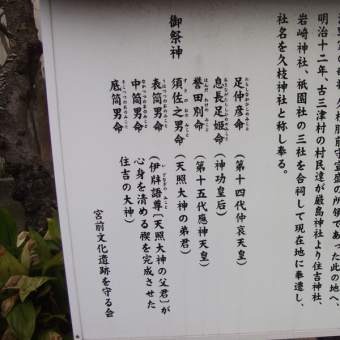 明治十二年、古三津村の村民達が厳島神社より住吉神社、
岩崎神社、祇園社の三社を合祠して現在地に奉遷し、
社名を久枝神社と称し奉る。
御祭神
足仲彦命（第十四代仲哀天皇）
息長足姫命（神功皇后）
誉田別命（第十五代應神天皇）
須佐之男命（天照大神の弟君）
表筒男命
中筒男命
底筒男命
（伊牂諾尊〔天照大神の父君〕が
心身を清める禊を完成させた
住吉の大神）
宮前文化遺跡を守る会